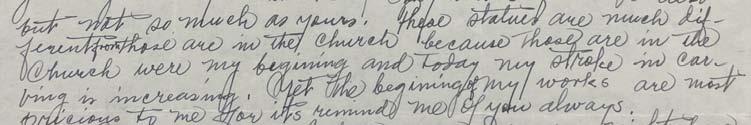 but not so much as yours. These statues are much dif-
ferent from those are in the church because those are in the
Church were my begining and today my stroke in car-
ving is increasing. Yet the begining of my works are most
precious to me for its remind me of you always.